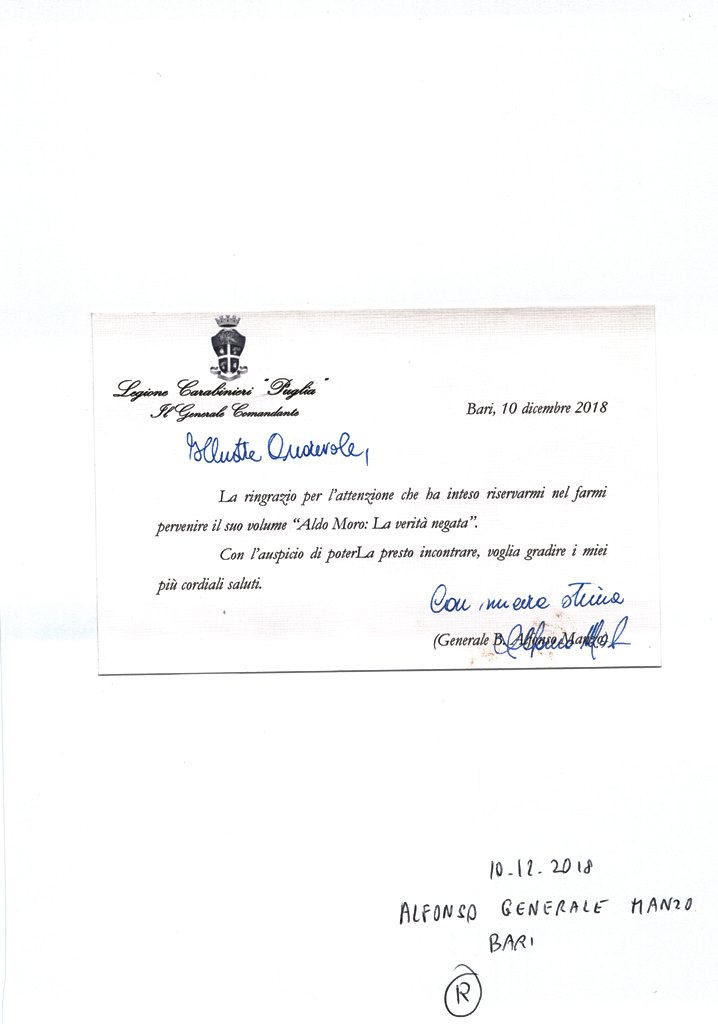 Legione Carabinieri "Puglia"
Il Generale Comandante
Bari, 10 dicembre 2018
Illustre Onorevole,
La ringrazio per l'attenzione che ha inteso riservarmi nel farmi
pervenire il suo volume "Aldo Moro: La verità negata".
Con l'auspicio di poterLa presto incontrare, voglia gradire i miei
più cordiali saluti.
Con stima
(Generale B. Alfonso Manzo)
10-12-2018
ALFONSO GENERALE MANZO
BARI
R